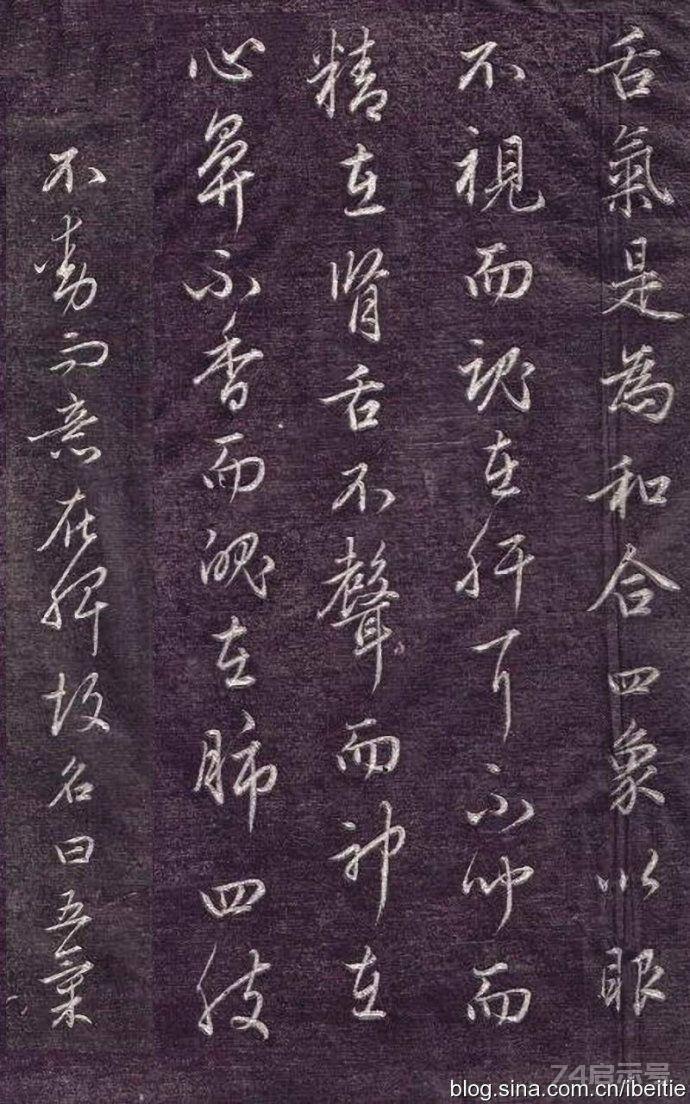 舌氣是為和合四象以眼
不視而魂在肝耳不听而
精在肾舌不聲而神在
心鼻不香而魄在肺四肢
不動而意在脾故名曰五氣
74启示号
blog.sina.com.cn/ibeitie